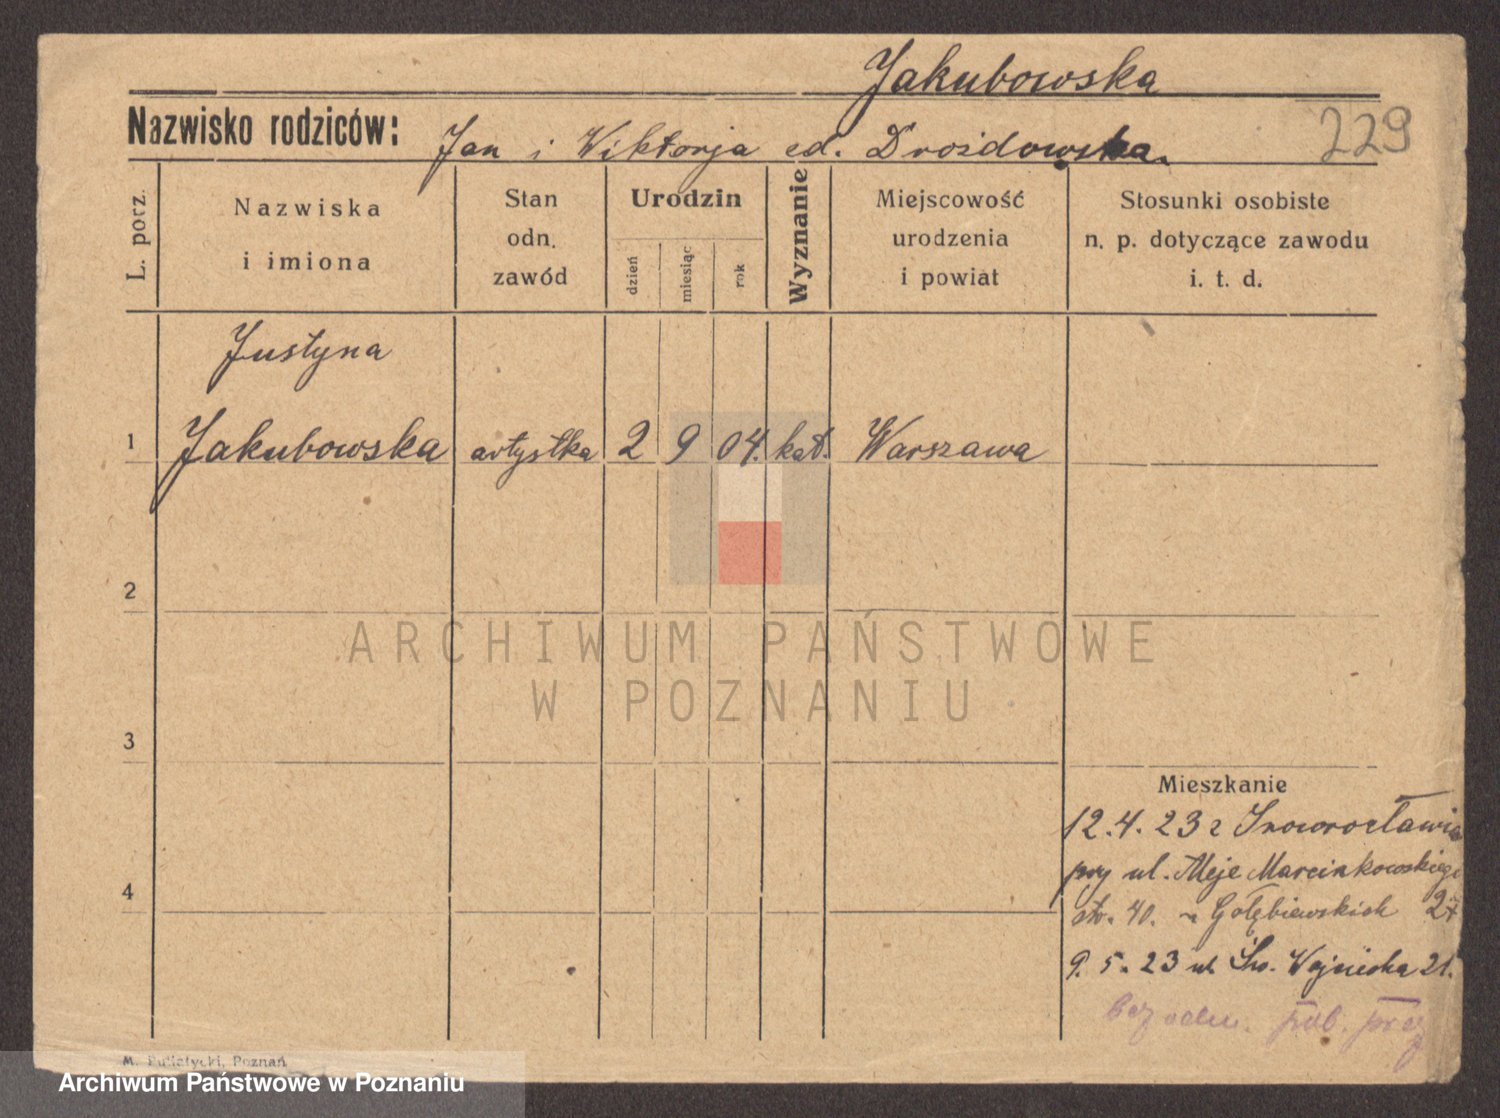 Jakubowska
Nazwisko rodziców: Jan i Wiktorja Drożdowska.
229
L. porz.
Nazwiska
i imiona
Stan
odn.
zawód
Urodzin
dzień
miesiąc
rok
Wyznanie
Miejscowość
urodzenia
i powiat
Stosunki osobiste
n. p. dotyczące zawodu
i. t. d.
Justyna
1 Jakubowska artystka 2 9 04. kat. Warszawa
2
ARCHIWUM PAŃSTWOWE
W POZNANIU
3
Mieszkanie
12.4.23 z Inowrocławia
ul. Marcinkowskiego
40. Gołębiewskich
4
9.5.23 ul Św. Wojciecha 21.
pob.
M. Putiatycki, Poznań
Archiwum Państwowe w Poznaniu